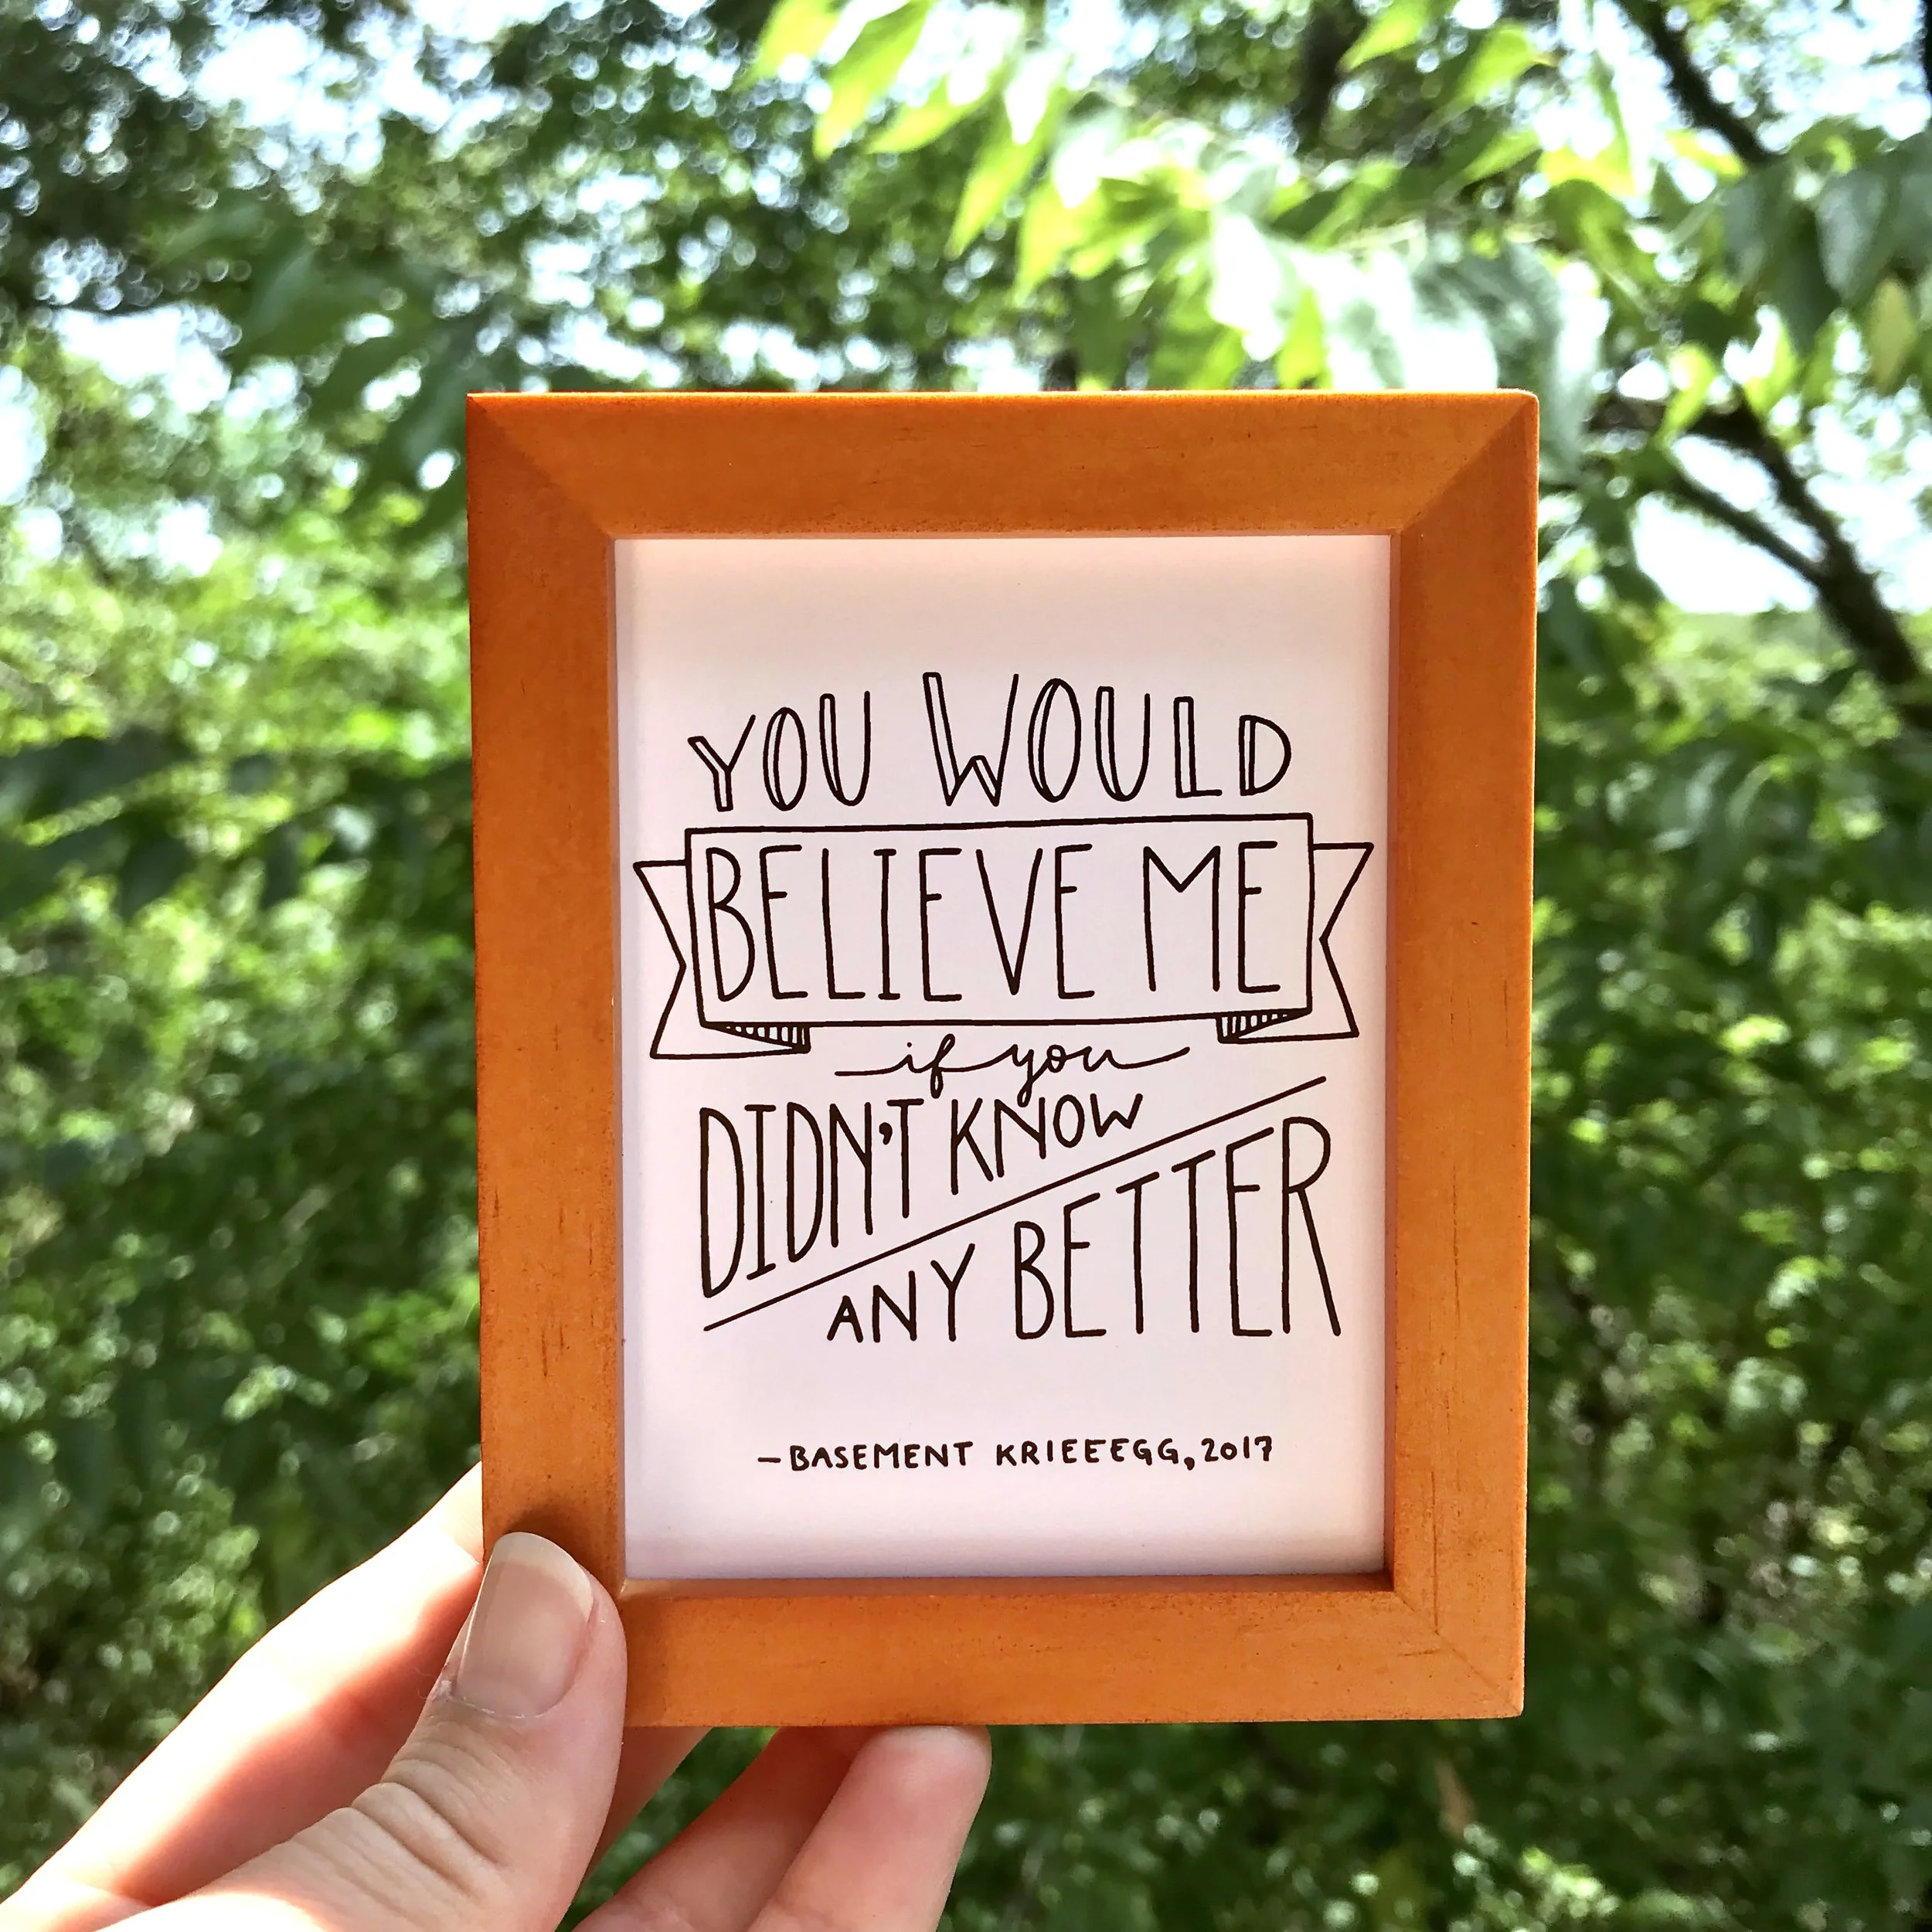 YOU WOULD
BELIEVE ME
if you
DIDN'T KNOW
ANY BETTER
—BASEMENT KRIEEEGG, 2017